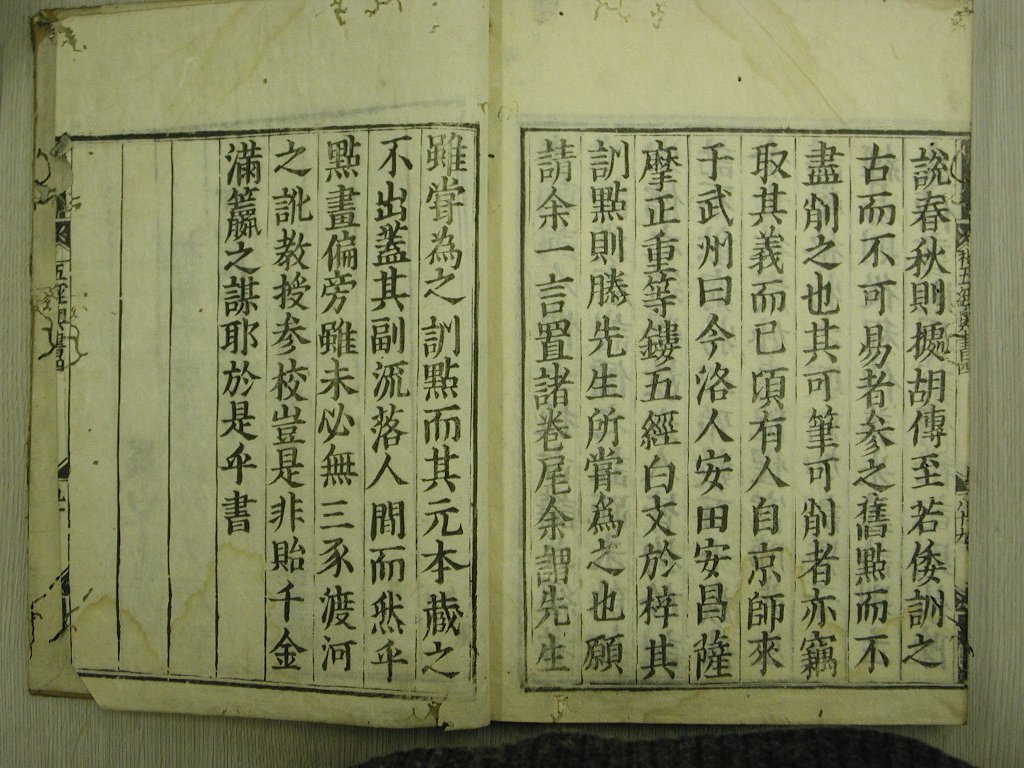 說春秋則據胡傳至若倭訓之
古而不可易者參之舊點而不
盡削之也其可筆可削者亦竊
取其義而已頃有人自京師來
于武州曰今洛人安田安昌薩
摩正重等鏤五經白文於梓其
訓點則勝先生所嘗爲之也願
請余一言置諸卷尾余謂先生
雖嘗為之訓點而其元本藏之
不出蓋其副流落人間而然乎
點畫偏旁雖未必無三豕渡河
之訛教授参校豈是非貽千金
滿籯之謀耶於是乎書